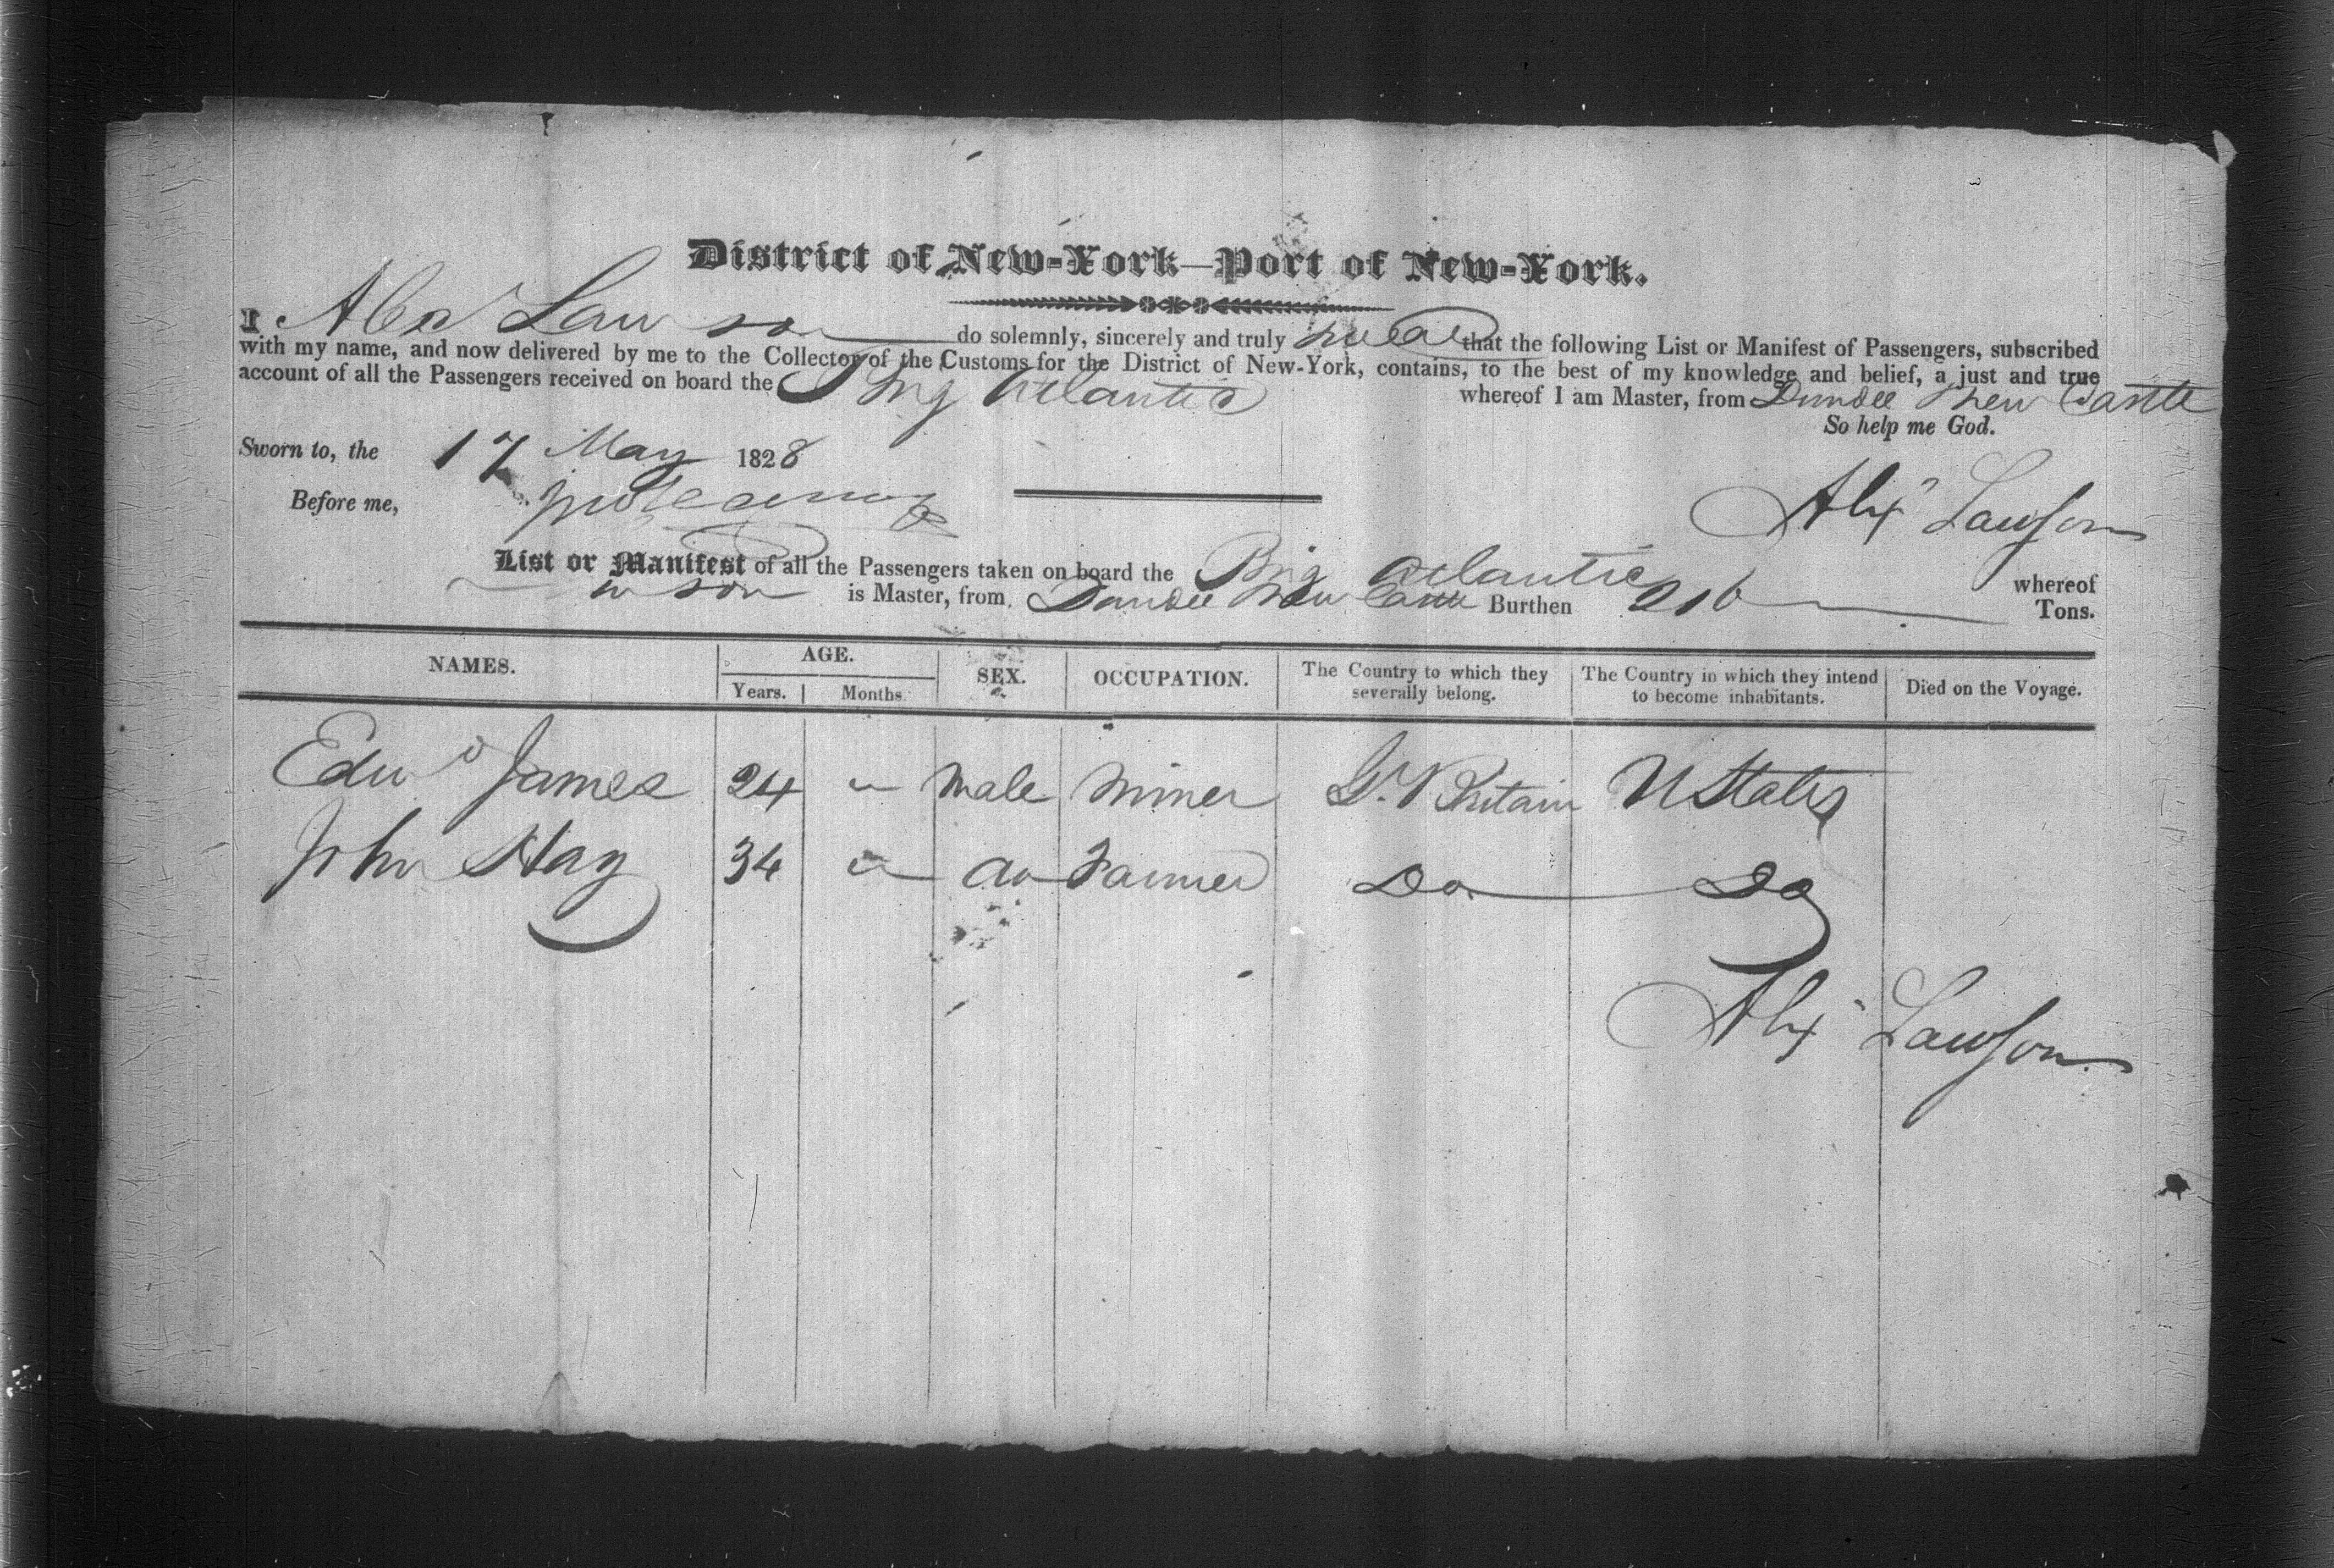 District of New-York—Port of New-York.
I Alexr Lawson do solemnly, sincerely and truly swear that the following List or Manifest of Passengers, subscribed
with my name, and now delivered by me to the Collector of the Customs for the District of New-York, contains, to the best of my knowledge and belief, a just and true
account of all the Passengers received on board the Brig Atlantic whereof I am Master, from Dundee & New Castle
So help me God.
Sworn to, the 17 May 1828
Before me,
Alexr Lawson
List or Manifest of all the Passengers taken on board the Brig Atlantic whereof
Lawson is Master, from Dundee & New Castle Burthen 216 Tons.
NAMES. AGE. SEX. OCCUPATION. The Country to which they severally belong. The Country in which they intend to become inhabitants. Died on the Voyage.
Years. Months.
Edwd James 24 " male miner Gt. Britain U States
John Hay 34 " do Farmer Do Do
Alexr Lawson